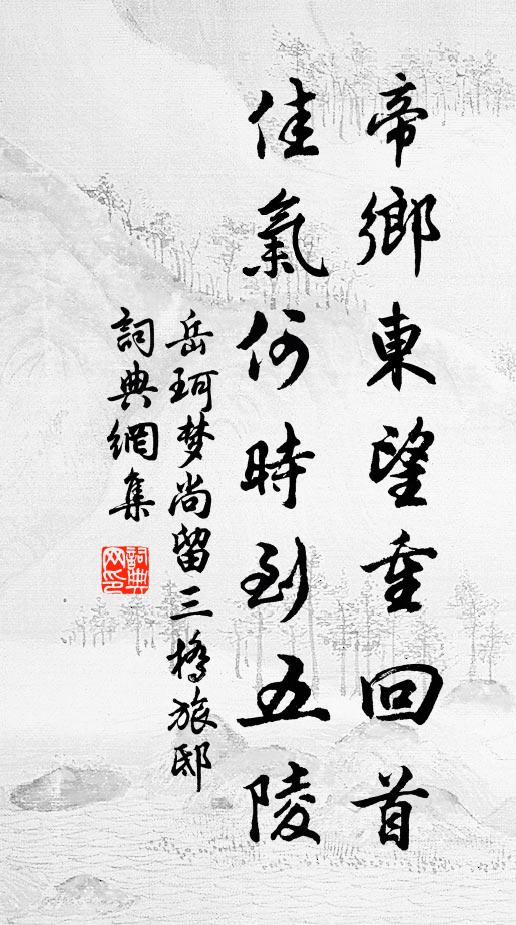 帝鄉東望重回首
佳氣何時到五陵
岳珂梦尚留三橋旅邸
詞典網集
詞典网印